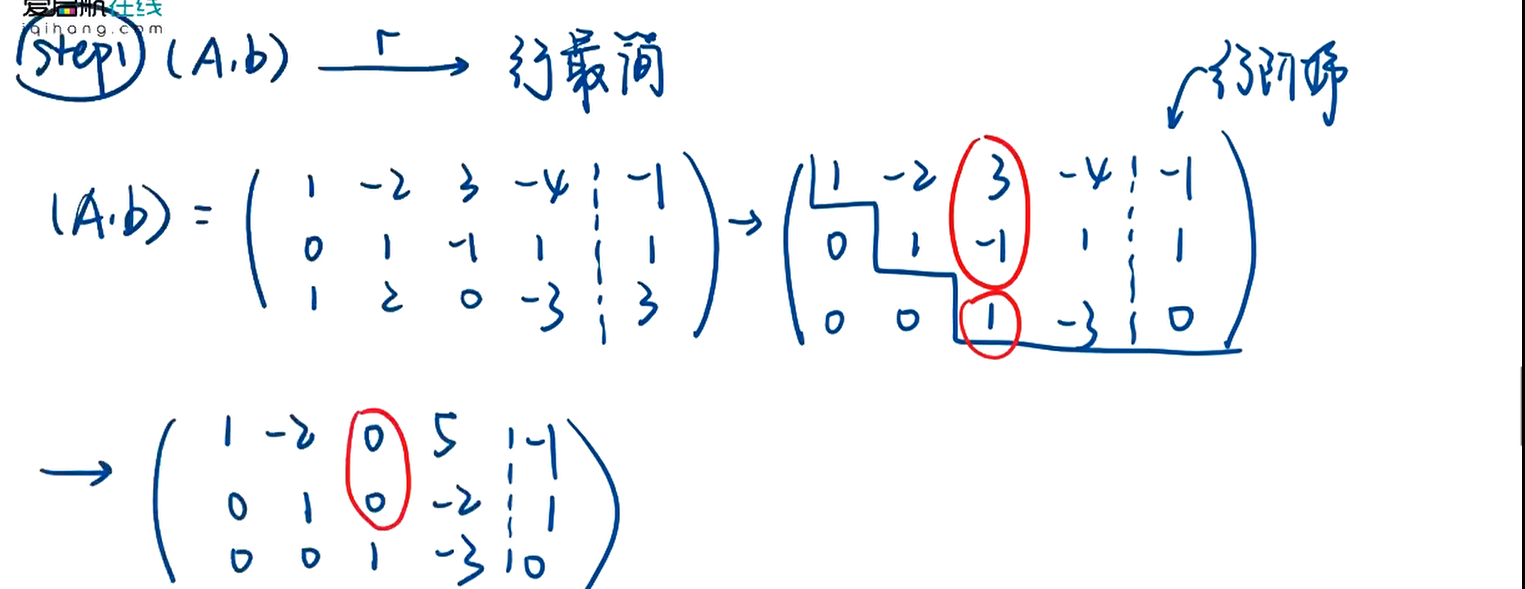 爱启航在线
iqihang.com
step1 (A,b) r→ 行最简
行阶梯
(A,b) = ( 1 -2 3 -4 ¦ -1 → ( 1 -2 3 -4 ¦ -1
0 1 -1 1 ¦ 1 0 1 -1 1 ¦ 1
1 2 0 -3 ¦ 3 ) 0 0 1 -3 ¦ 0 )
→ ( 1 -2 0 5 ¦ -1
0 1 0 -2 ¦ 1
0 0 1 -3 ¦ 0 )